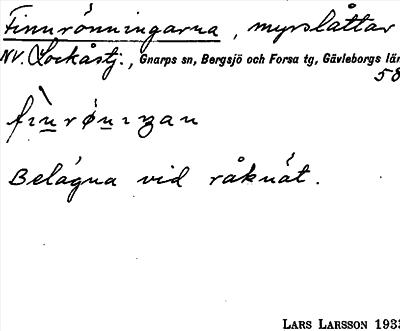 Finnrönningarna, myrslåttar
NV. Lockåstj:, Gnarps sn, Bergsjö och Forsa tg, Gävleborgs län
58
Belägna vid råknät.
LARS LARSSON 1933